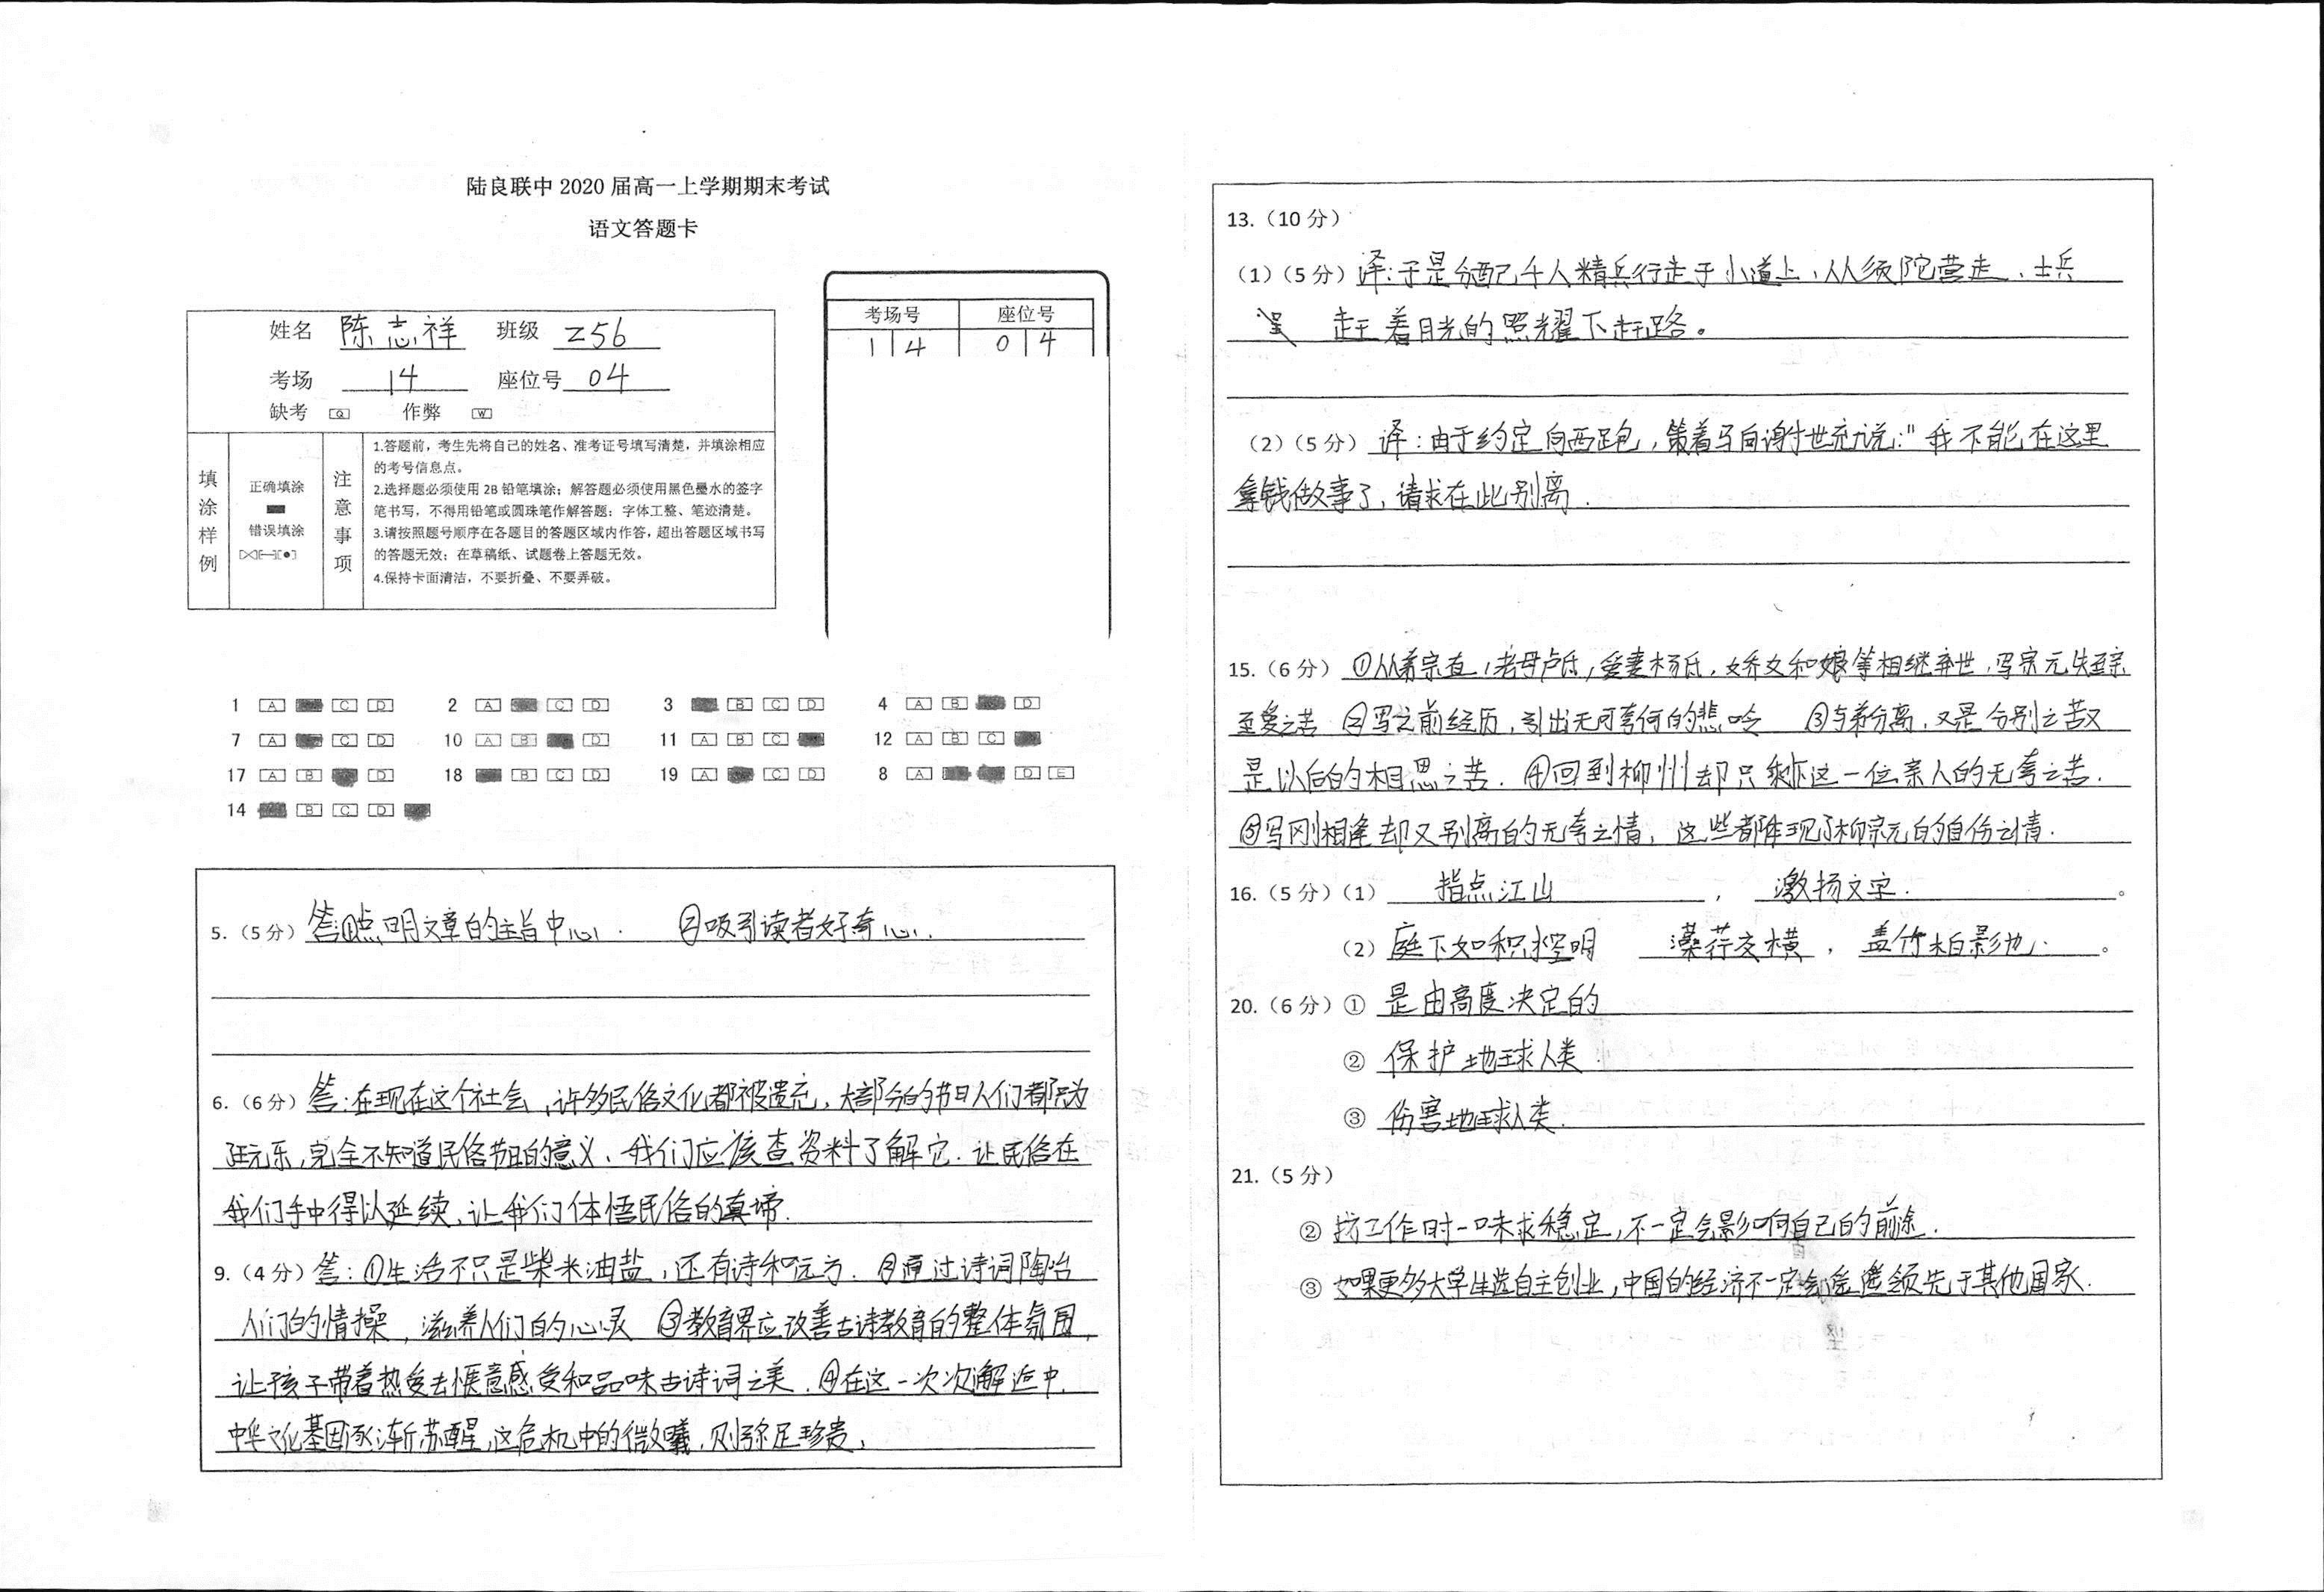 陆良联中 2020 届高一上学期期末考试
语文答题卡
姓名 陈志祥 班级 256
考场 14 座位号 04
缺考 [Q] 作弊 [W]
考场号 座位号
1 4 0 4
填涂样例
正确填涂
错误填涂
注意事项
1.答题前，考生先将自己的姓名、准考证号填写清楚，并填涂相应
的考号信息点。
2.选择题必须使用 2B 铅笔填涂；解答题必须使用黑色墨水的签字
笔书写，不得用铅笔或圆珠笔作解答题；字体工整、笔迹清楚。
3.请按照题号顺序在各题目的答题区域内作答，超出答题区域书写
的答题无效；在草稿纸、试题卷上答题无效。
4.保持卡面清洁，不要折叠、不要弄破。
1 [A] [C] [D] 2 [A] [C] [D] 3 [B] [C] [D] 4 [A] [B] [D]
7 [A] [C] [D] 10 [A] [B] [D] 11 [A] [B] [C] 12 [A] [B] [C]
17 [A] [B] [D] 18 [B] [C] [D] 19 [A] [C] [D] 8 [A] [D] [E]
14 [B] [C] [D]
5.（5 分）答①点明文章的主旨中心. ②吸引读者好奇心.
6.（6 分）答:在现在这个社会,许多民俗文化都被遗忘,大部分的节日人们都只为
玩乐,完全不知道民俗节日的意义、我们应该查资料了解它.让民俗在
我们手中得以延续、让我们体悟民俗的真谛.
9.（4 分）答:①生活不只是柴米油盐,还有诗和远方. ②通过诗词陶冶
人们的情操,滋养人们的心灵 ③教育界应改善古诗教育的整体氛围,
让孩子带着热爱去惬意感受和品味古诗词之美. ④在这一次次邂逅中.
中华文化基因逐渐苏醒,这危机中的微曦,则弥足珍贵,
13.（10 分）
（1）（5 分）译:于是分配千人精兵行走于小道上,从须陀营走、士兵
赶着月光的照耀下赶路。
（2）（5 分）译:由于约定向西跑,策着马向谢世充说:"我不能在这里
拿钱做事了,请求在此别离.
15.（6 分）①从弟宗直,老母卢氏,爱妻杨氏,娇女和娘等相继弃世,写宗元失至亲
至爱之苦 ②写之前经历,引出无可奈何的悲吟 ③与弟分离,又是分别之苦又
是以后的相思之苦. ④回到柳州却只剩下这一位亲人的无奈之苦.
⑤写刚相逢却又别离的无奈之情,这些都体现了柳宗元的自伤之情.
16.（5 分）（1） 指点江山 ， 激扬文字. 。
（2）庭下如积水空明 藻荇交横 ， 盖竹柏影也. 。
20.（6 分）① 是由高度决定的
② 保护地球人类
③ 伤害地球人类.
21.（5 分）
② 找工作时一味求稳定,不一定会影响自己的前途.
③ 如果更多大学生选自主创业,中国的经济不一定会遥遥领先于其他国家.